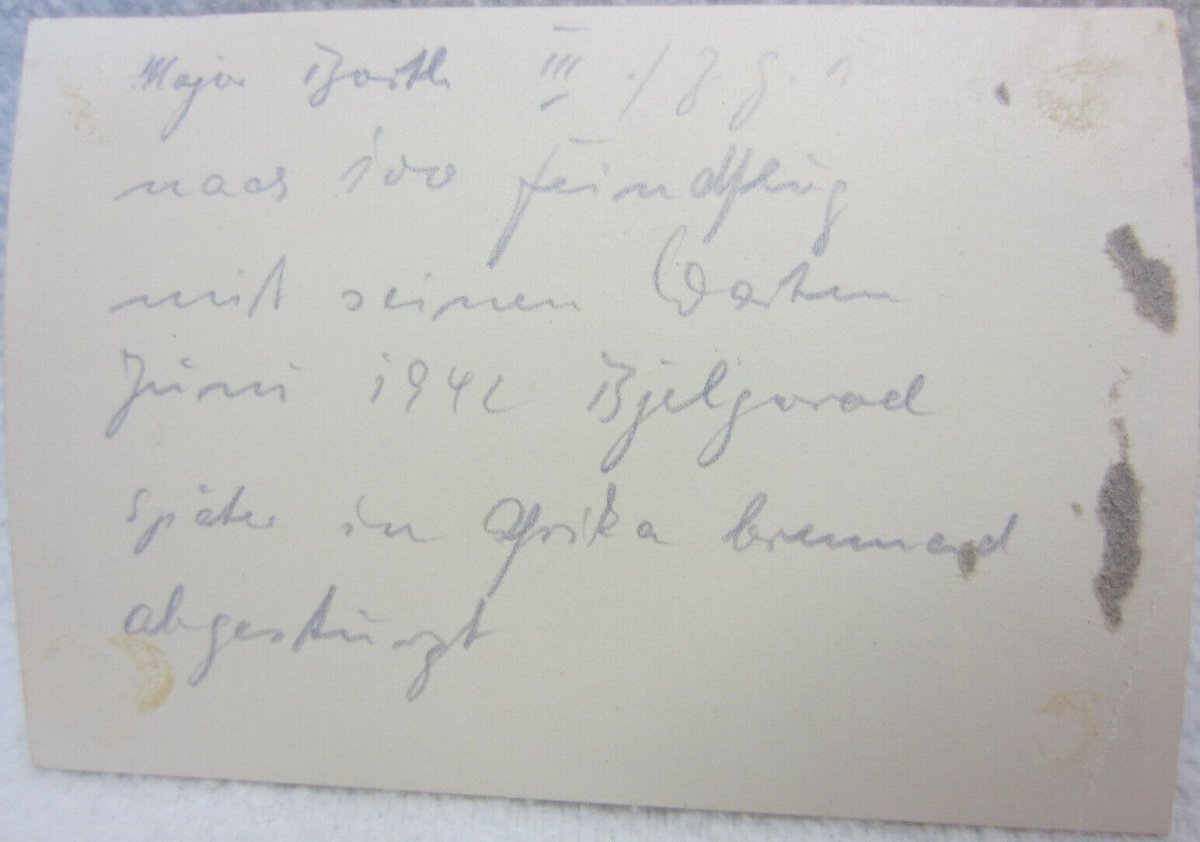 Major Barth III./Z G 1
nach 100 Feindflüg
mit seinen Warten
Juni 1942 Bjelgorod
später in Afrika brennend
abgestürzt